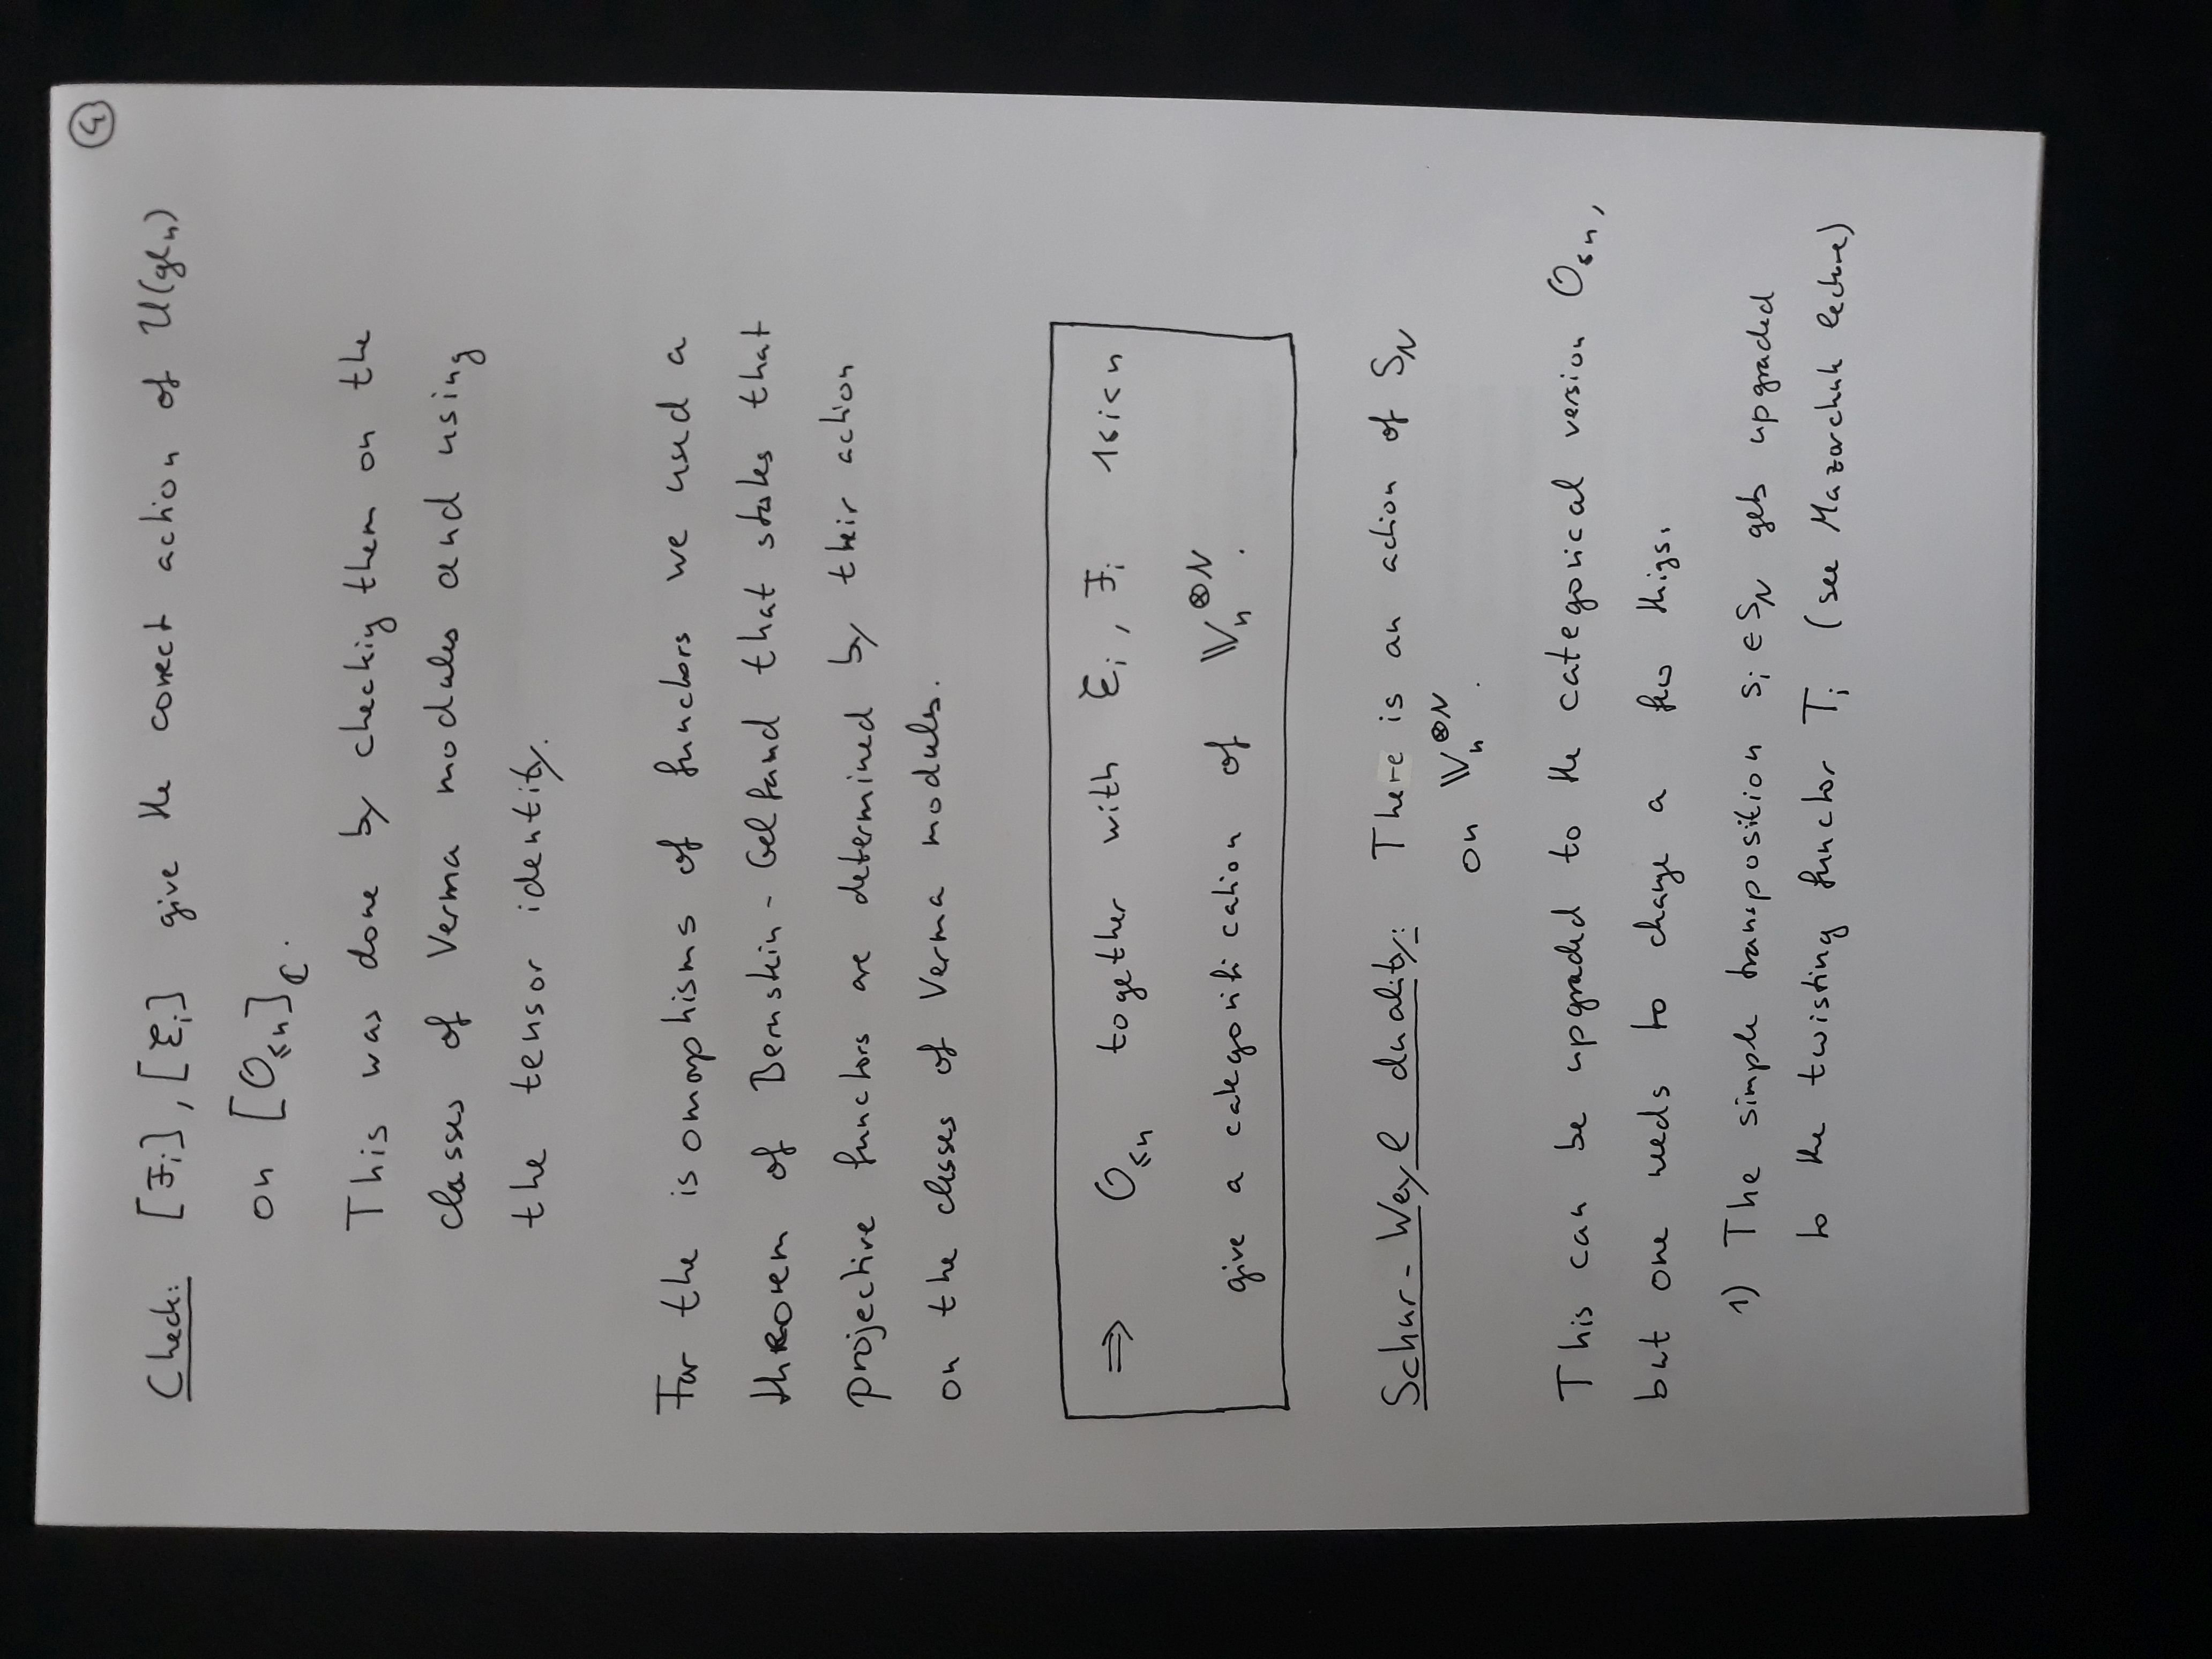 ④
Check: [ℱᵢ], [ℰᵢ] give the correct action of U(glₙ)
on [𝒪≤n]_ℂ.
This was done by checkig them on the
classes of Verma modules and using
the tensor identity.
For the isomorphisms of functors we used a
theorem of Bernstein-Gelfand that states that
projective functors are determined by their action
on the classes of Verma modules.
⇒ 𝒪≤n together with ℰᵢ, ℱᵢ 1≤i<n
give a categorification of 𝕍ₙ^⊗N.
Schur-Weyl duality: There is an action of S_N
on 𝕍ₙ^⊗N.
This can be upgraded to the categorical version 𝒪≤n,
but one needs to change a few thigs.
1) The simple transposition sᵢ ∈ S_N gets upgraded
to the twisting functor Tᵢ (see Mazorchuk lecture)